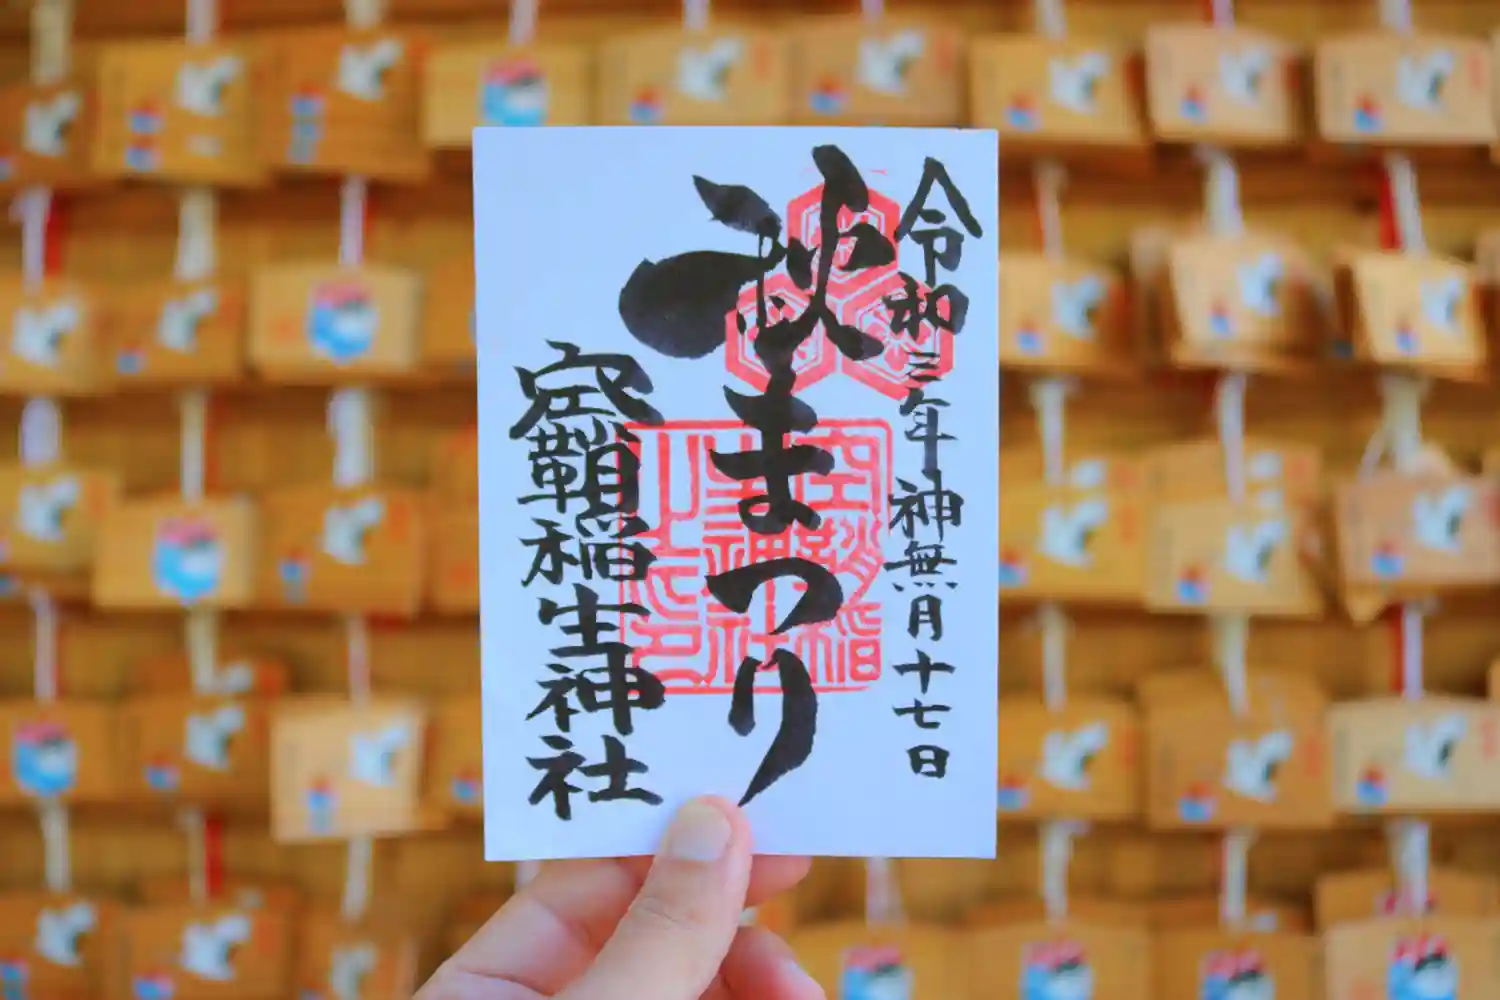 令和三年神無月十七日
秋まつり
空鞘稲生神社
空鞘稲
生神社